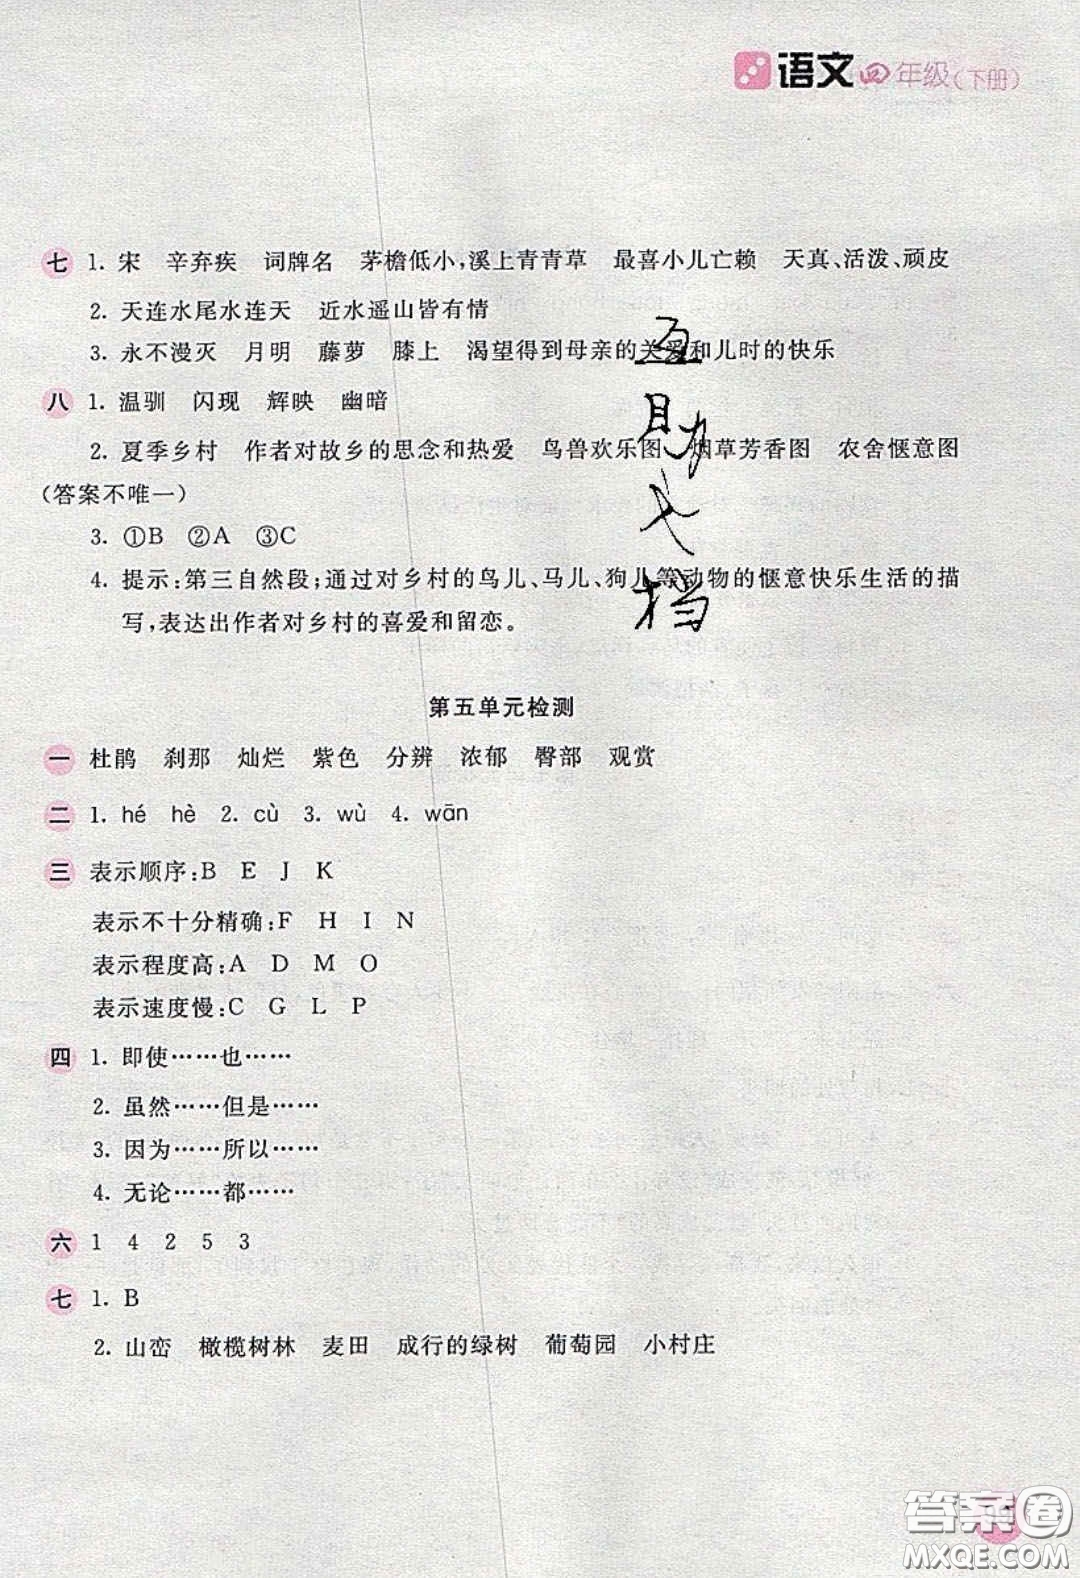 语文四年级(下册)
七 1. 宋 辛弃疾 词牌名 茅檐低小,溪上青青草 最喜小儿亡赖 天真、活泼、顽皮
2. 天连水尾水连天 近水遥山皆有情
3. 永不漫灭 月明 藤萝 膝上 渴望得到母亲的关爱和儿时的快乐
八 1. 温驯 闪现 辉映 幽暗
2. 夏季乡村 作者对故乡的思念和热爱 鸟兽欢乐图 烟草芳香图 农舍惬意图
(答案不唯一)
3. ①B ②A ③C
4. 提示:第三自然段;通过对乡村的鸟儿、马儿、狗儿等动物的惬意快乐生活的描
写,表达出作者对乡村的喜爱和留恋。
第五单元检测
一 杜鹃 刹那 灿烂 紫色 分辨 浓郁 臀部 观赏
二 1. hé hè 2. cù 3. wù 4. wān
三 表示顺序:B E J K
表示不十分精确:F H I N
表示程度高:A D M O
表示速度慢:C G L P
四 1. 即使……也……
2. 虽然……但是……
3. 因为……所以……
4. 无论……都……
六 1 4 2 5 3
七 1. B
2. 山峦 橄榄树林 麦田 成行的绿树 葡萄园 小村庄
答案圈
MXQE.COM